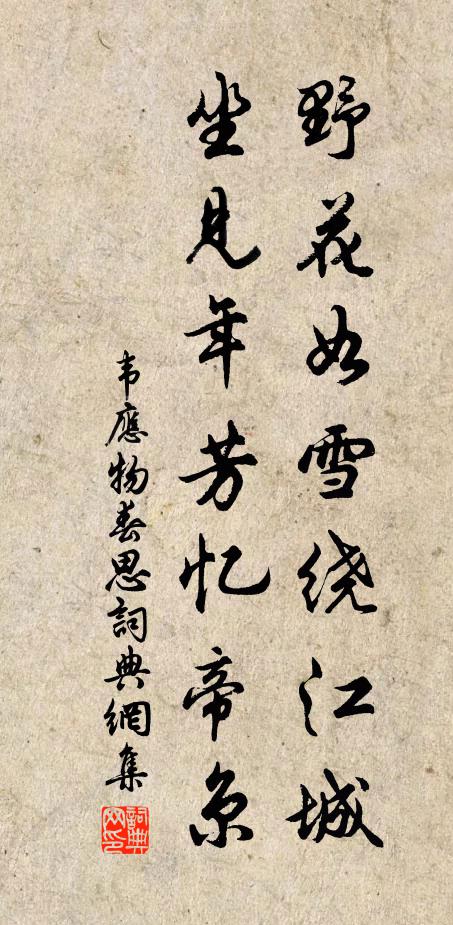 野花如雪绕江城
坐见年芳忆帝京
韦應物春思詞典網集
詞典网印